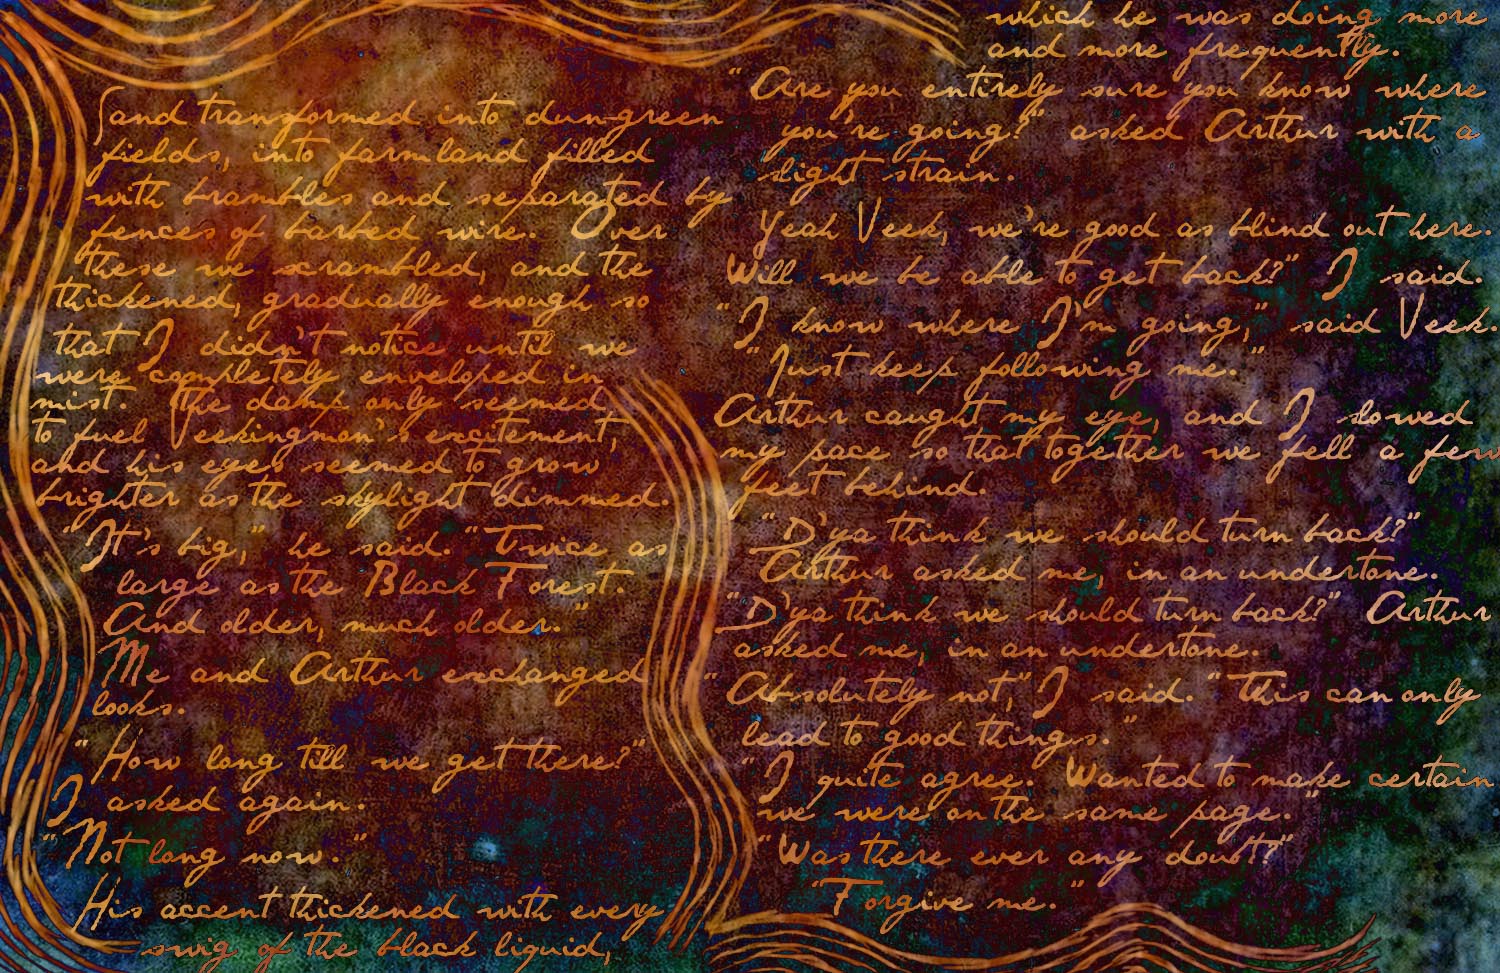 and transformed into dun-green
fields, into farmland filled
with brambles and separated by
fences of barbed wire. Over
these we scrambled, and the
thickened, gradually enough so
that I didn't notice until we
were completely enveloped in
mist. The damp only seemed
to fuel Veekingmon's excitement,
and his eyes seemed to grow
brighter as the skylight dimmed.
"It's big," he said. "Twice as
large as the Black Forest.
And older, much older."
Me and Arthur exchanged
looks.
"How long till we get there?"
I asked again.
"Not long now."
His accent thickened with every
swig of the black liquid,
which he was doing more
and more frequently.
"Are you entirely sure you know where
you're going?" asked Arthur with a
slight strain.
Yeah Veek, we're good as blind out here.
Will we be able to get back?" I said.
"I know where I'm going," said Veek.
"Just keep following me."
Arthur caught my eye, and I slowed
my pace so that together we fell a few
feet behind.
"D'ya think we should turn back?"
Arthur asked me, in an undertone.
"D'ya think we should turn back?" Arthur
asked me, in an undertone.
"Absolutely not," I said. "This can only
lead to good things."
"I quite agree. Wanted to make certain
we were on the same page."
"Was there ever any doubt?"
"Forgive me."